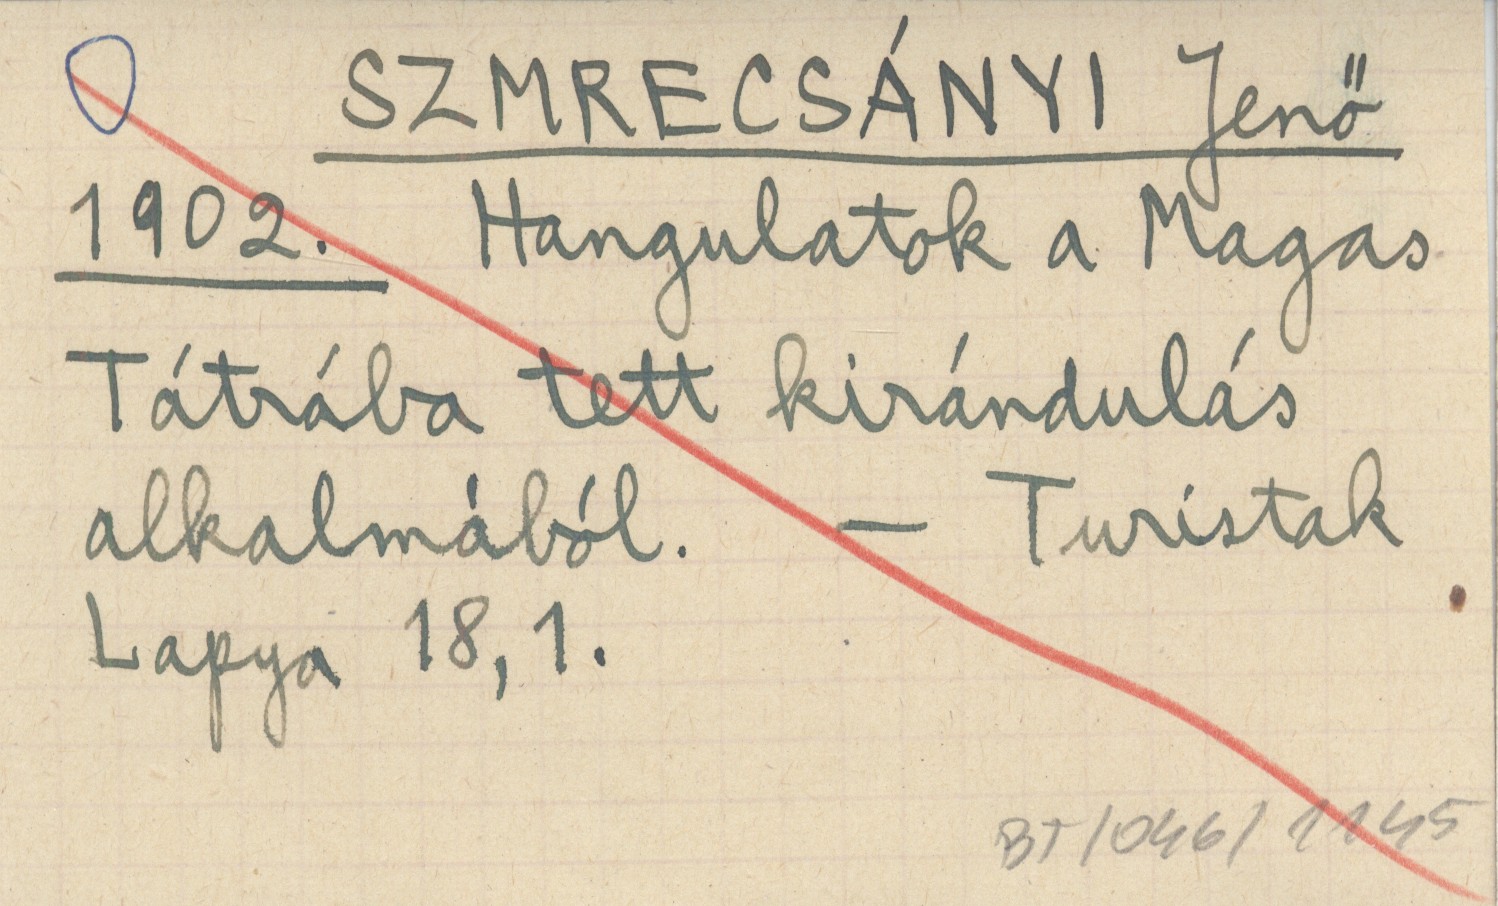 SZMRECSÁNYI Jenő
1902. Hangulatok a Magas
Tátrába tett kirándulás
alkalmából. — Turisták
Lapja 18, 1.
BT/046/1145